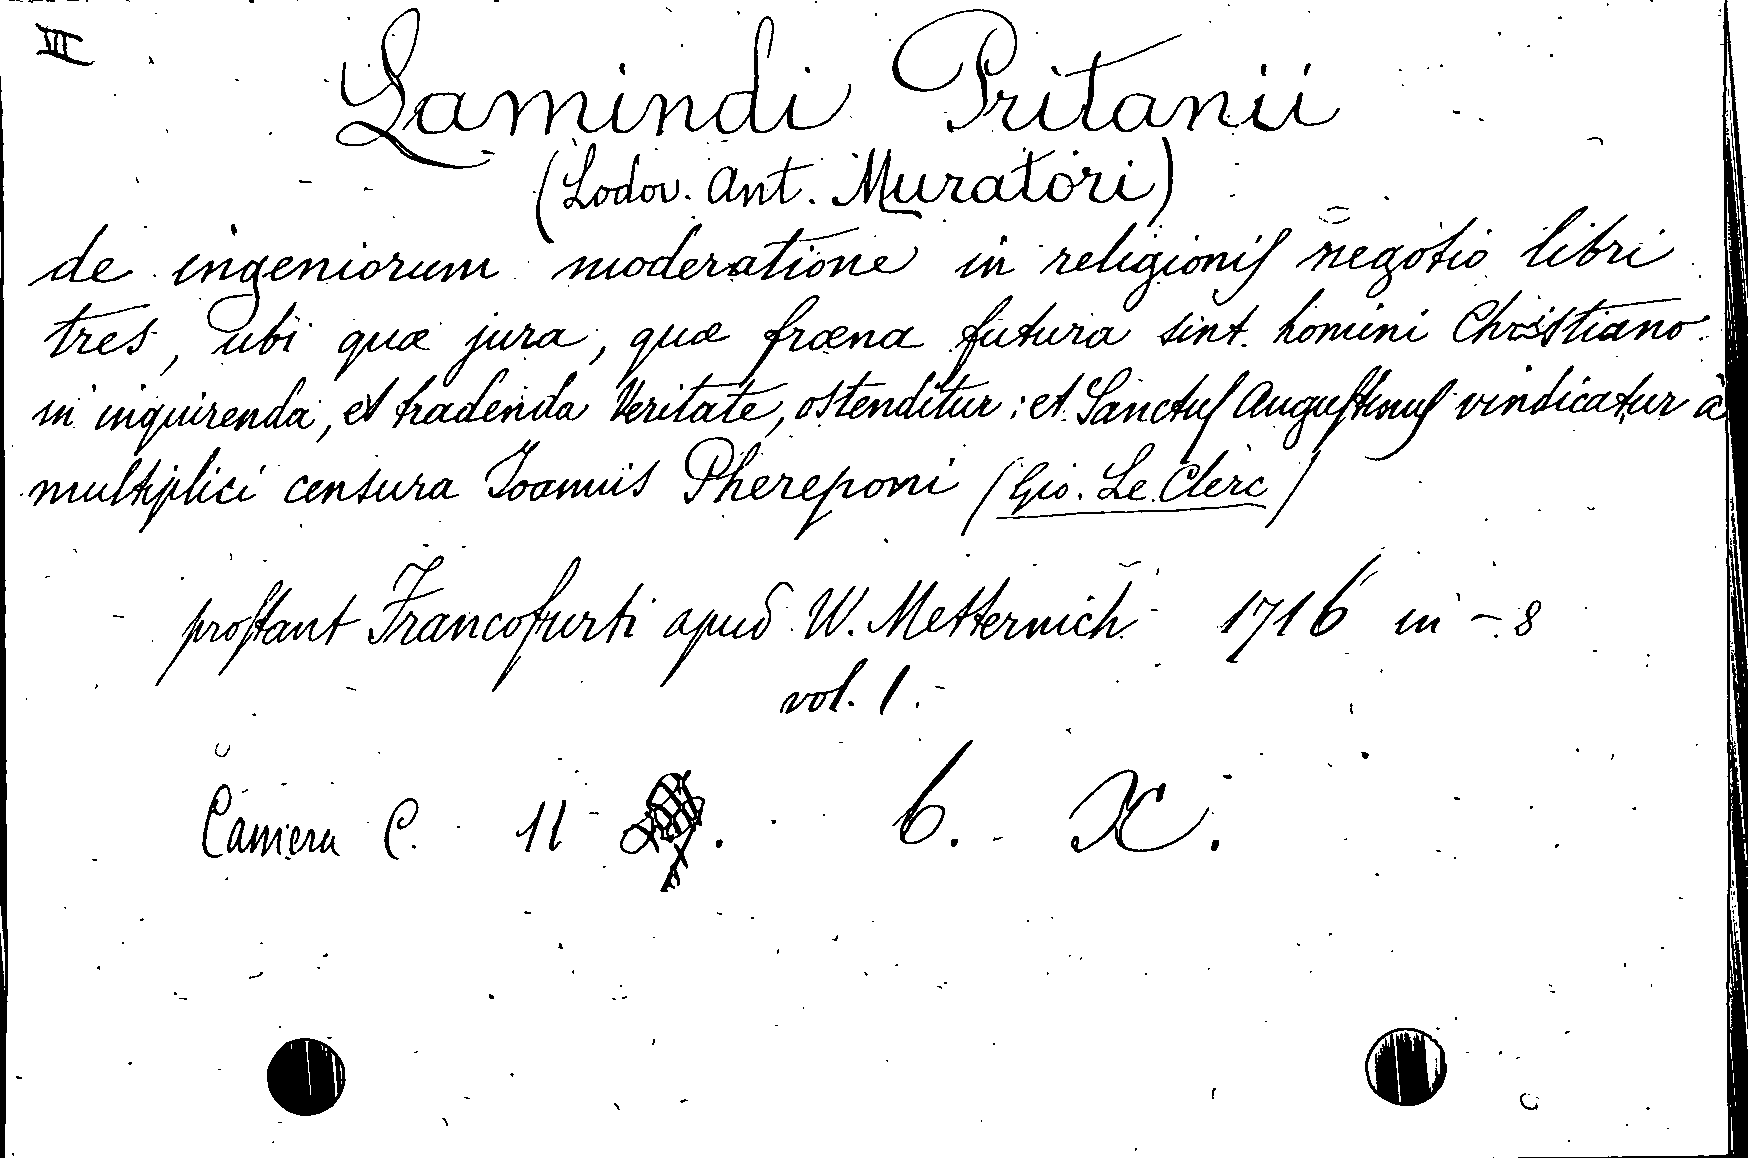 VII
Lamindi Pritanii
(Lodov. Ant. Muratori)
de ingeniorum moderatione in religionis negotio libri
tres, ubi quæ jura, quæ fræna futura sint homini Christiano
in inquirenda, et tradenda Veritate, ostenditur: et Sanctus Augustinus vindicatur à
multiplici censura Joannis Phereponi (Gio. Le Clerc)
prostant Francofurti apud W. Metternich 1716 in-8
vol. 1.
Camera C. 11 . 6. X.